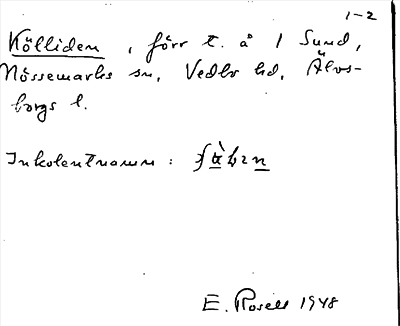 1-2
Kölliden, förr t. å 1 Sund,
Nössemarks sn, Vedbo hd, Älvs-
borgs l.
Inkolentnamn:
E. Rosell 1948